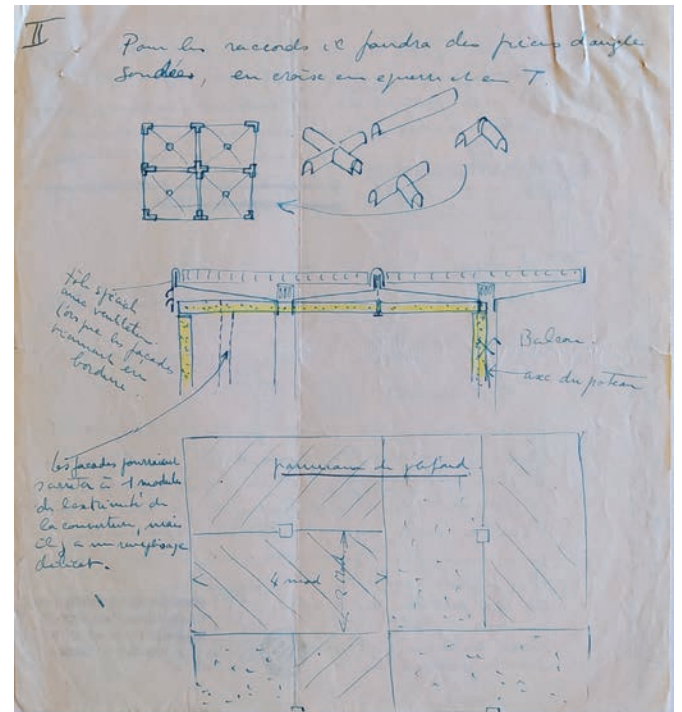 II
Pour les raccords il faudra des pièces d'angle
soudées, en croix en équerre et en T.
tôle spéciale
avec ventilation
lorsque les façades
viennent en
bordure.
Balcon.
axe du poteau
Les façades pourraient
s'arrêter à 1 module
de l'extrémité de
la couverture, mais
il y a un remplissage
délicat.
panneaux de plafond
4 mod
2 mod